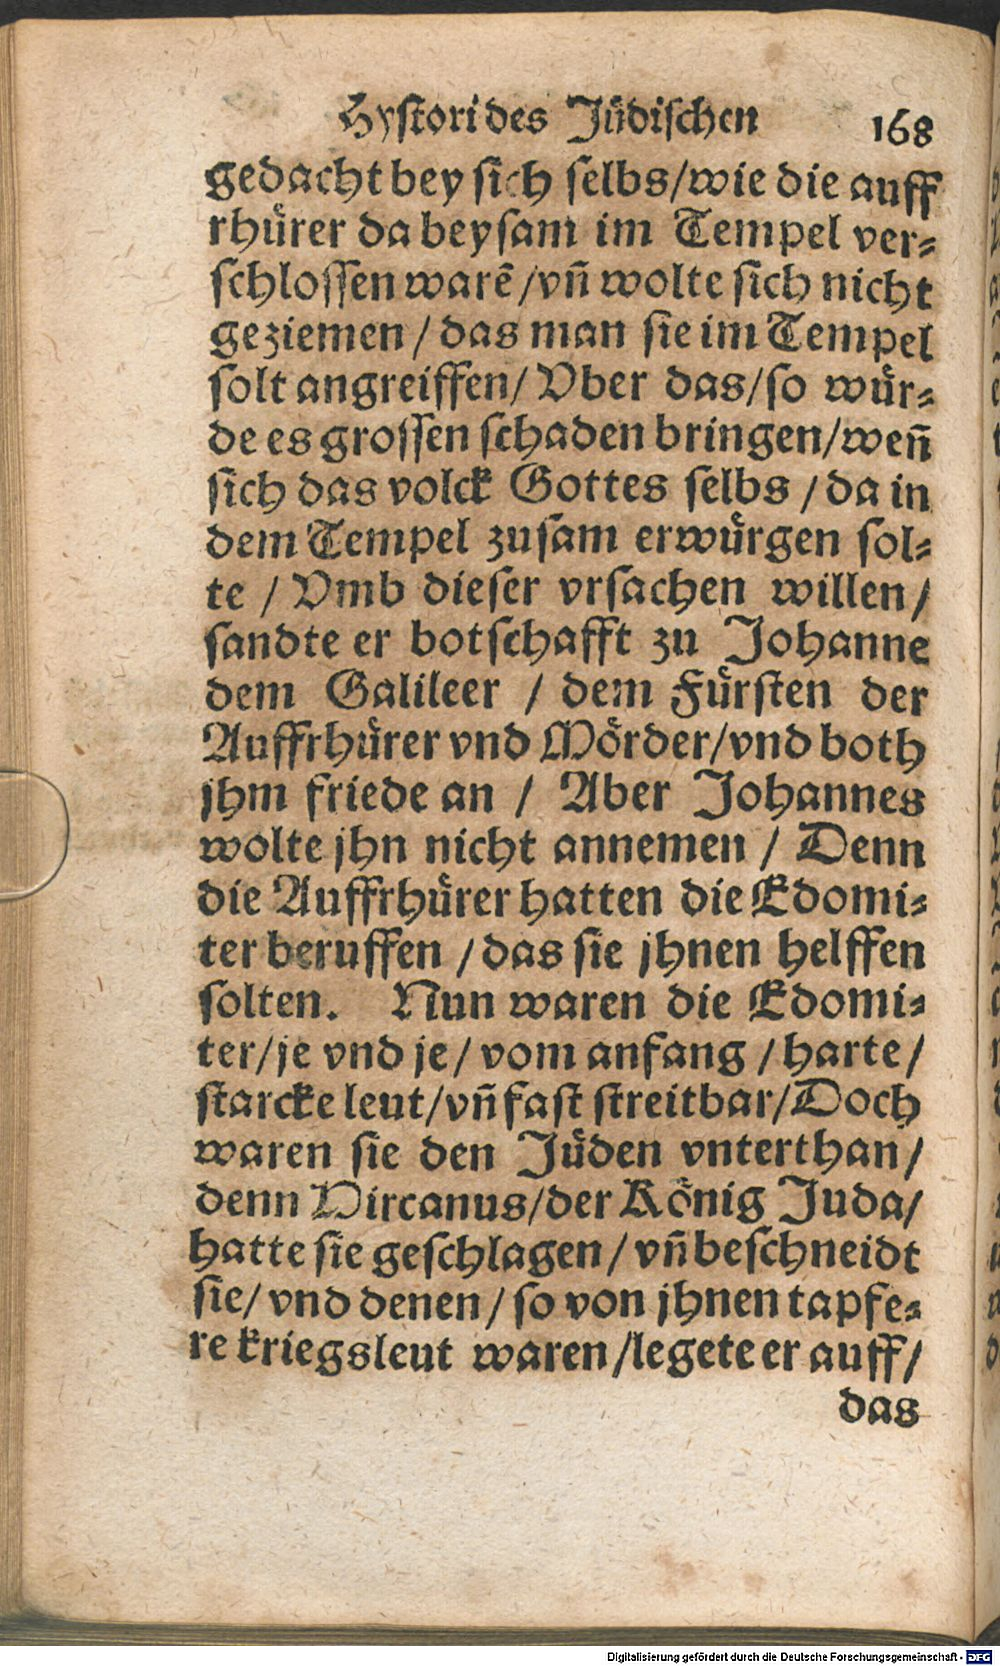 Hystori des Jüdischen 168
gedacht bey sich selbs/wie die auff
rhürer da beysam im Tempel ver-
schlossen warẽ /vñ wolte sich nicht
geziemen / das man sie im Tempel
solt angreiffen/ Vber das/so wür-
de es grossen schaden bringen/weñ
sich das volck Gottes selbs /da in
dem Tempel zusam erwürgen sol-
te / Vmb dieser vrsachen willen/
sandte er botschafft zu Johanne
dem Galileer / dem Fürsten der
Auffrhürer vnd Mörder/vnd both
jhm friede an / Aber Johannes
wolte jhn nicht annemen / Denn
die Auffrhürer hatten die Edomi-
ter beruffen /das sie jhnen helffen
solten. Nun waren die Edomi-
ter/je vnd je/ vom anfang /harte/
starcke leut/vñ fast streitbar/Doch
waren sie den Jüden vnterthan/
denn Hircanus/der König Juda/
hatte sie geschlagen/ vñ beschneidt
sie/ vnd denen/ so von jhnen tapfe-
re kriegsleut waren/legete er auff/
das
Digitalisierung gefördert durch die Deutsche Forschungsgemeinschaft - DFG